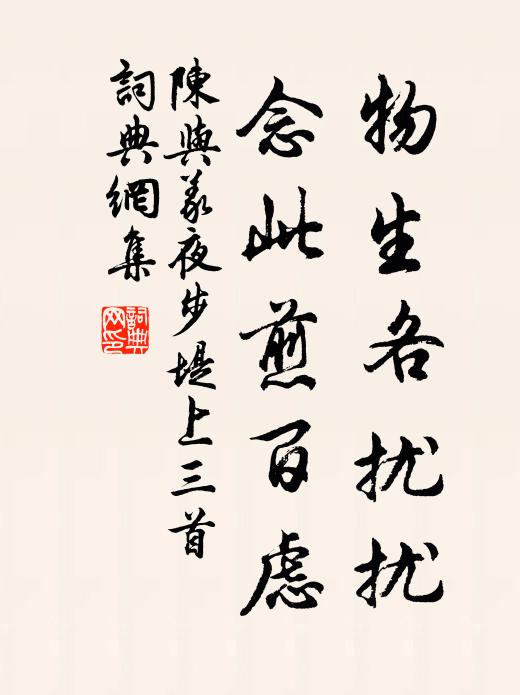 物生各扰扰
念此煎百虑
陳與義夜步堤上三首
詞典網集
詞典网印